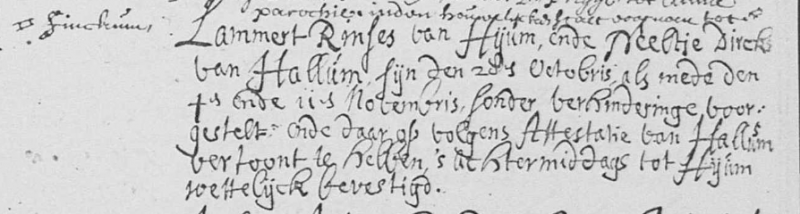 parochien inden houwelijken staat
D Finckum,
Lammert Rinses van Hijum, ende Neeltje Dircks
van Hallum sijn den 28s Octobris, als mede den
4s ende 11s Novembris, sonder verhinderinge voor-
gestelt. Ende daar op volgens Attestatie van Hallum
vertoont te hebben, 's achtermiddags tot Hijum
wettelijck bevestigd.